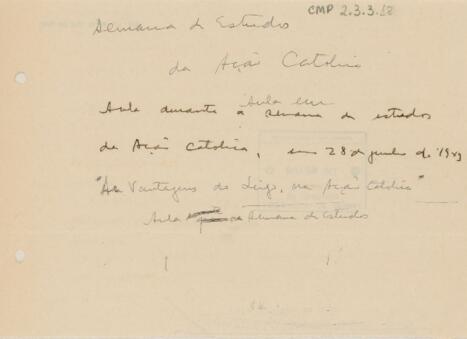 CMP 2.3.3.
Semana de Estudos
da Ação Catolica
Aula em
Aula durante a semana de estudos
da Ação Catolica, em 28 de de 1949
"As Vantagens do Leigo, na Ação Catolica"
Aula na Semana de Estudos